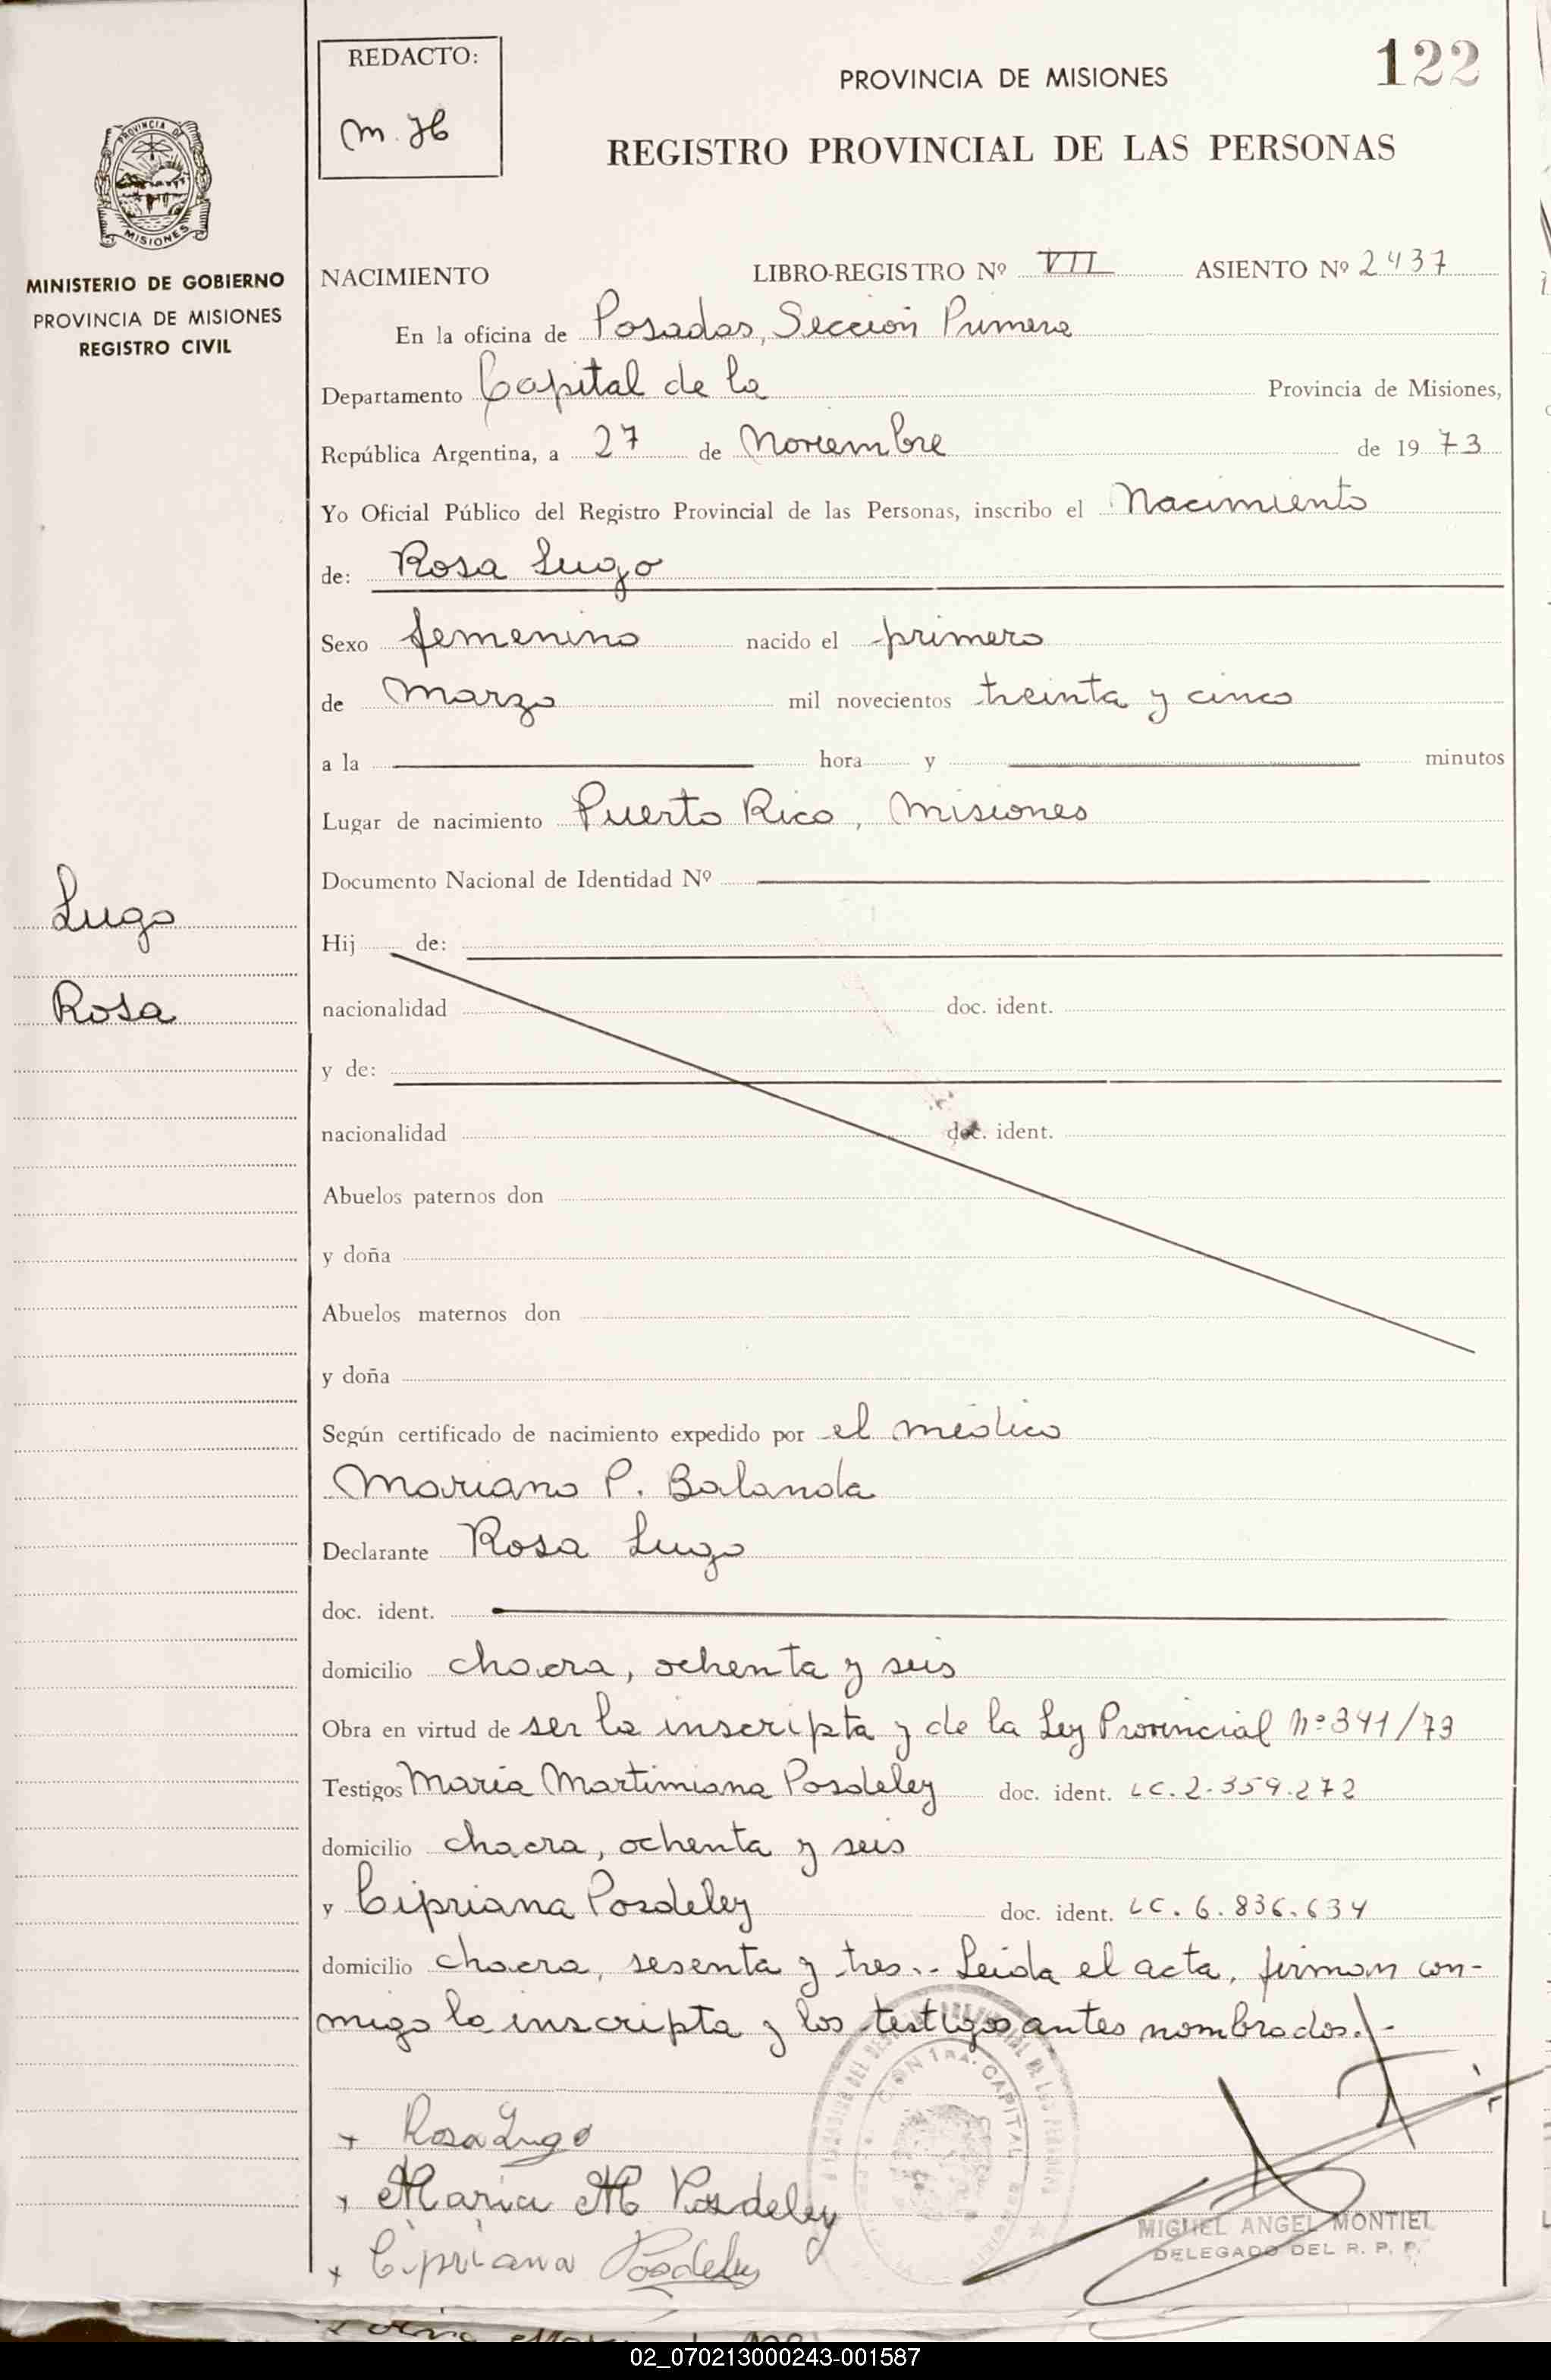 REDACTO:
m. H
122
PROVINCIA DE MISIONES
REGISTRO PROVINCIAL DE LAS PERSONAS
PROVINCIA DE
MISIONES
MINISTERIO DE GOBIERNO
PROVINCIA DE MISIONES
REGISTRO CIVIL
NACIMIENTO LIBRO-REGISTRO Nº VII ASIENTO Nº 2437
En la oficina de Posadas, Sección Primera
Departamento Capital de la Provincia de Misiones,
República Argentina, a 27 de Noviembre de 1973
Yo Oficial Público del Registro Provincial de las Personas, inscribo el Nacimiento
de: Rosa Lugo
Sexo femenino nacido el primero
de Marzo mil novecientos treinta y cinco
a la hora y minutos
Lugar de nacimiento Puerto Rico, Misiones
Documento Nacional de Identidad Nº
Lugo
Rosa
Hij de:
nacionalidad doc. ident.
y de:
nacionalidad doc. ident.
Abuelos paternos don
y doña
Abuelos maternos don
y doña
Según certificado de nacimiento expedido por el médico
Mariano P. Balanda
Declarante Rosa Lugo
doc. ident.
domicilio chacra, ochenta y seis
Obra en virtud de ser la inscripta y de la Ley Provincial Nº 341/73
Testigos María Martimiana Posdeley doc. ident. LC. 2.359.272
domicilio chacra, ochenta y seis
y Cipriana Posdeley doc. ident. LC. 6.836.634
domicilio chacra, sesenta y tres.- Leída el acta, firman con-
migo la inscripta y los testigos antes nombrados.-
+ Rosa Lugo
+ María M Posdeley
+ Cipriana Posdeley
MIGUEL ANGEL MONTIEL
DELEGADO DEL R. P. P.
02_070213000243-001587